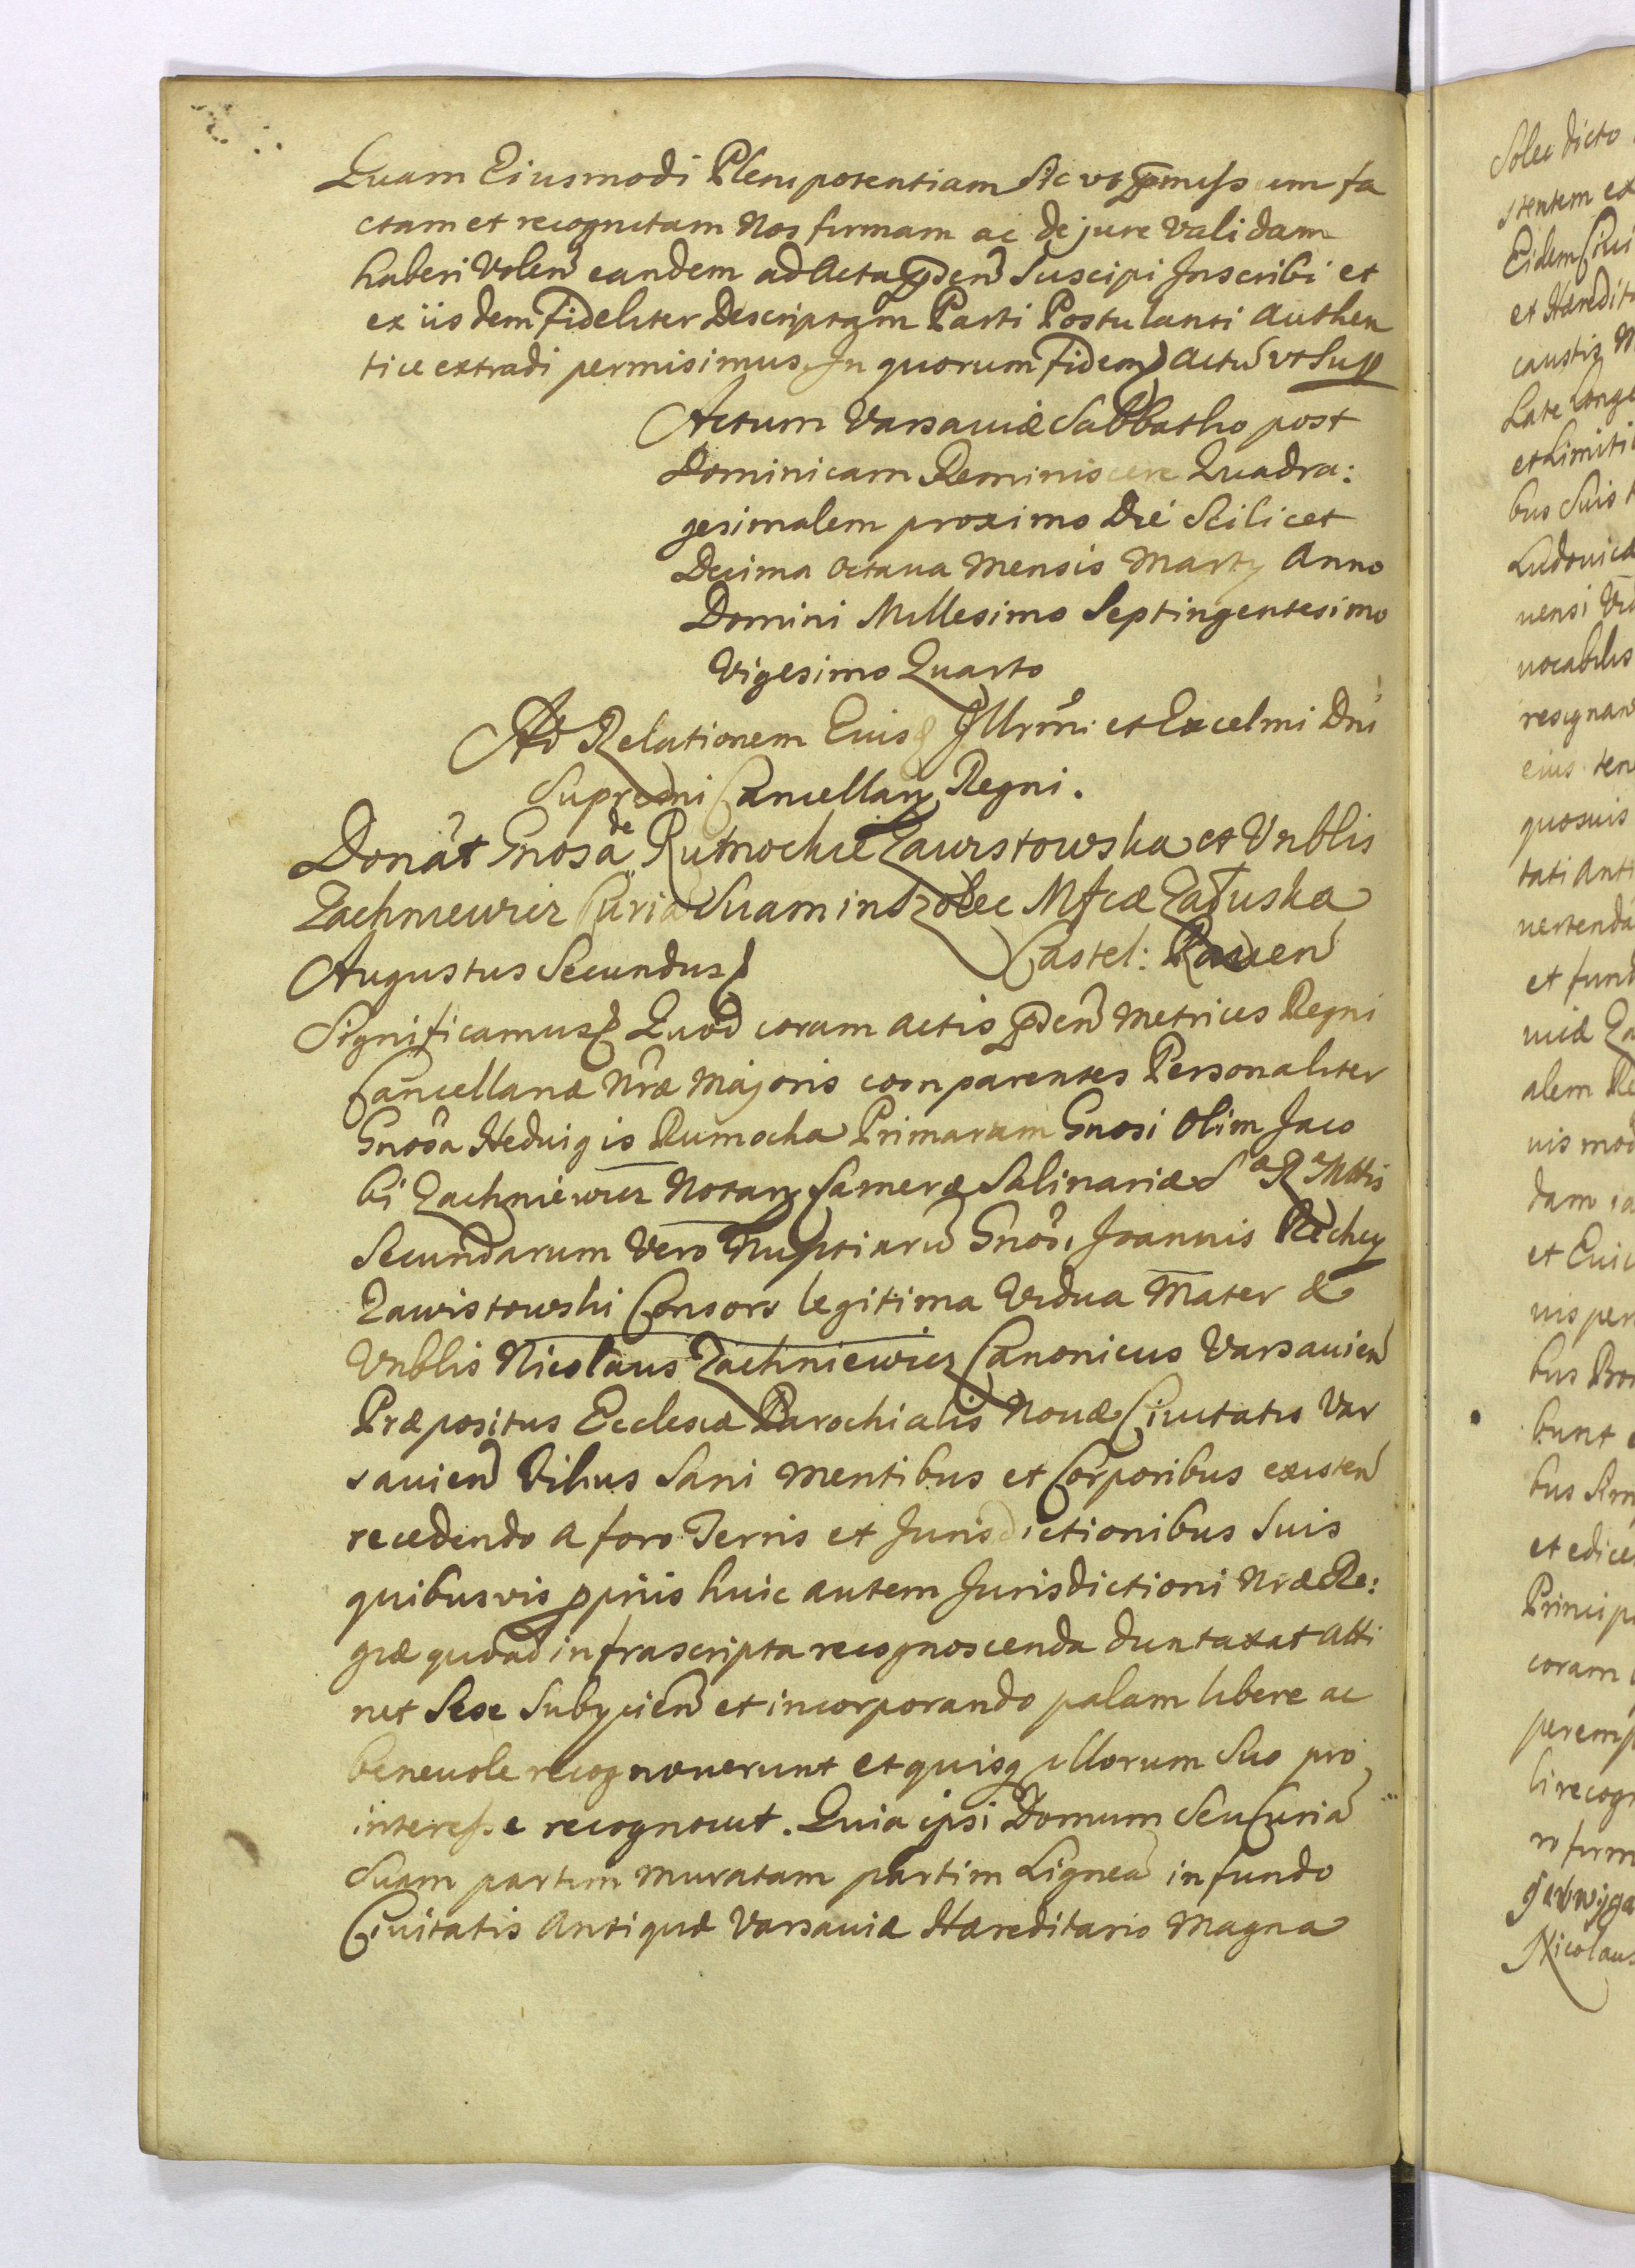 Quam Eiusmodi Plenipotentiam Sic vt pmissum fa
ctam et recognitam Nos firmam ac de jure validam
haberi Volen eandem ad Acta pnsen Suscipi Inscribi et
ex iisdem fideliter Descriptam Parti Postulanti Authen
tice extradi permisimus. In quorum fidem Actu vt Sup
Actum Varsauiæ Sabbatho post
Dominicam Reminiscere Quadra:
gesimalem proximo Die Scilicet
Decima Octaua Mensis Marty Anno
Domini Millesimo Septingentesimo
Vigesimo Quarto
Ad Relationem Eiusd Illrmi et Excelmi Dni
Supremi Cancellary Regni.
Donat Gnosa de Rumochie Zawistowska et Vnblis
Zachniewicz Curia Suam in Solec Mfcæ Załuska
Castel: Rauen
Augustus Secundus
Significamus Quod coram Actis pnsen Metrices Regni
Cancellariæ Nræ Majoris comparentes Personaliter
Gnosa Heduigis Rumocka Primaram Gnosi Olim Jaco
bi Zachniewicz Notary Cameræ Salinariæ S a R a Mttis
Secundarum Vero Nuptiaru Gnosi Joannis
Zawistowski Consors legitima Vidua Mater &
Vnblis Nicolaus Zachniewicz Canonicus Varsauien
Præpositus Ecclesiæ Parochialis Nouæ Ciuitatis Var
sauien Filius Sani Mentibus et Corporibus existen
recedendo a foro Terris et Jurisdictionibus Suis
quibusvis ppriis huic autem Jurisdictioni Nræ Re:
giæ quoad infrascripta recognoscenda duntaxat Atti
net Sese Subycien et incorporando palam libere ac
beneuole recognouerunt et quisq illorum Suo pro
interesse recognouit. Quia ipsi Domum Seu Curia
Suam partim muratam partim Lignea in fundo
Ciuitatis Antiquæ Varsauiæ Hæreditario Magna
Solec dicto
stentem et
Eidem Ciui
et Hæredit
caustis
Late Longe
et Limiti
bus Suis
Ludouica
uensi
uocabilis
resignan
eius ten
quosuis
tati Anti
uertenda
et fund
uiæ Za
alem Re
uis mod
dam
et Euic
uis per
bus Bon
bunt
bus
et edice
Princip
coram
peremp
li recog
ro firm
Jadwyga
Nicolaus